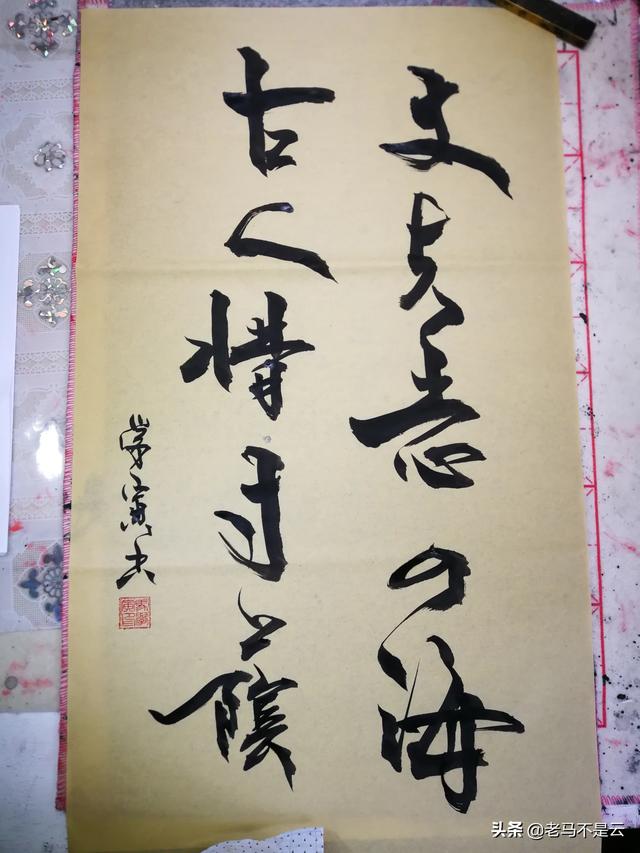 丈夫志四海
古人惜寸陰
头条 @老马不是云